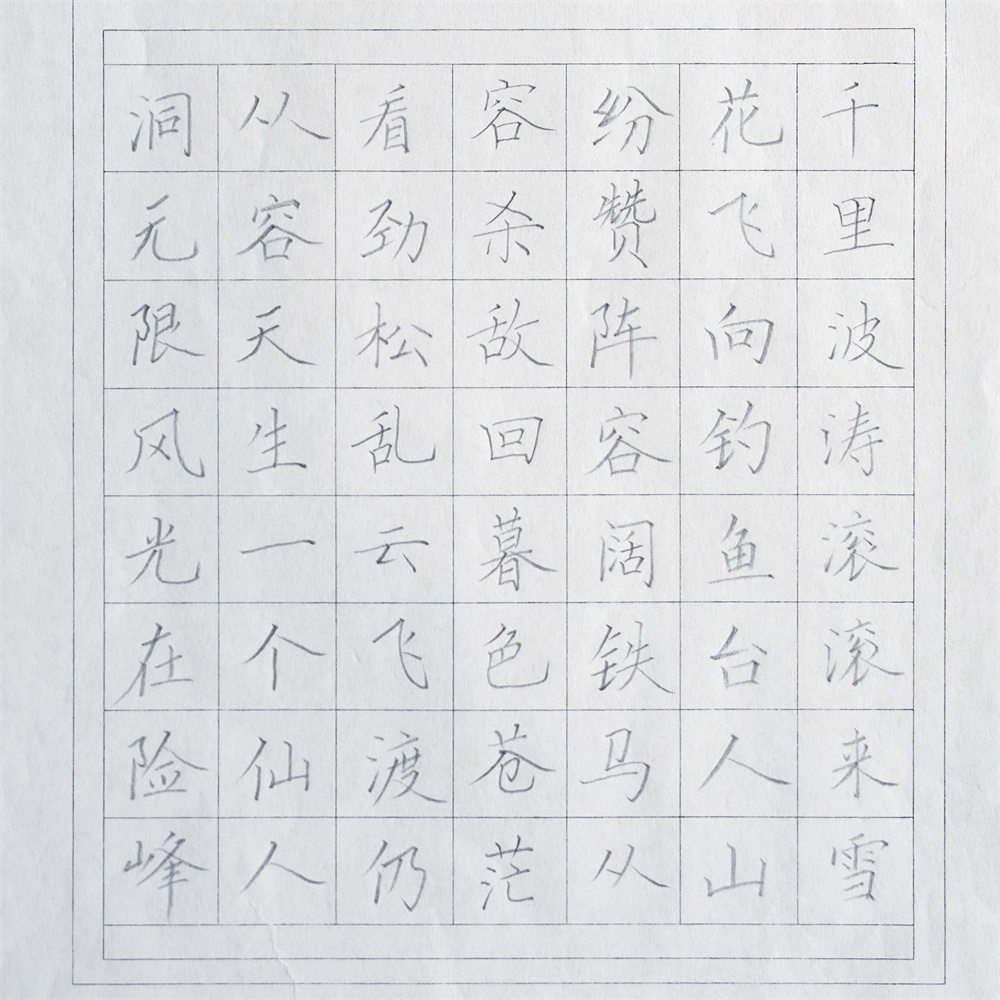 千里波涛滚滚来雪
花飞向钓鱼台人山
纷赞阵容阔铁马从
容杀敌回暮色苍茫
看劲松乱云飞渡仍
从容天生一个仙人
洞无限风光在险峰